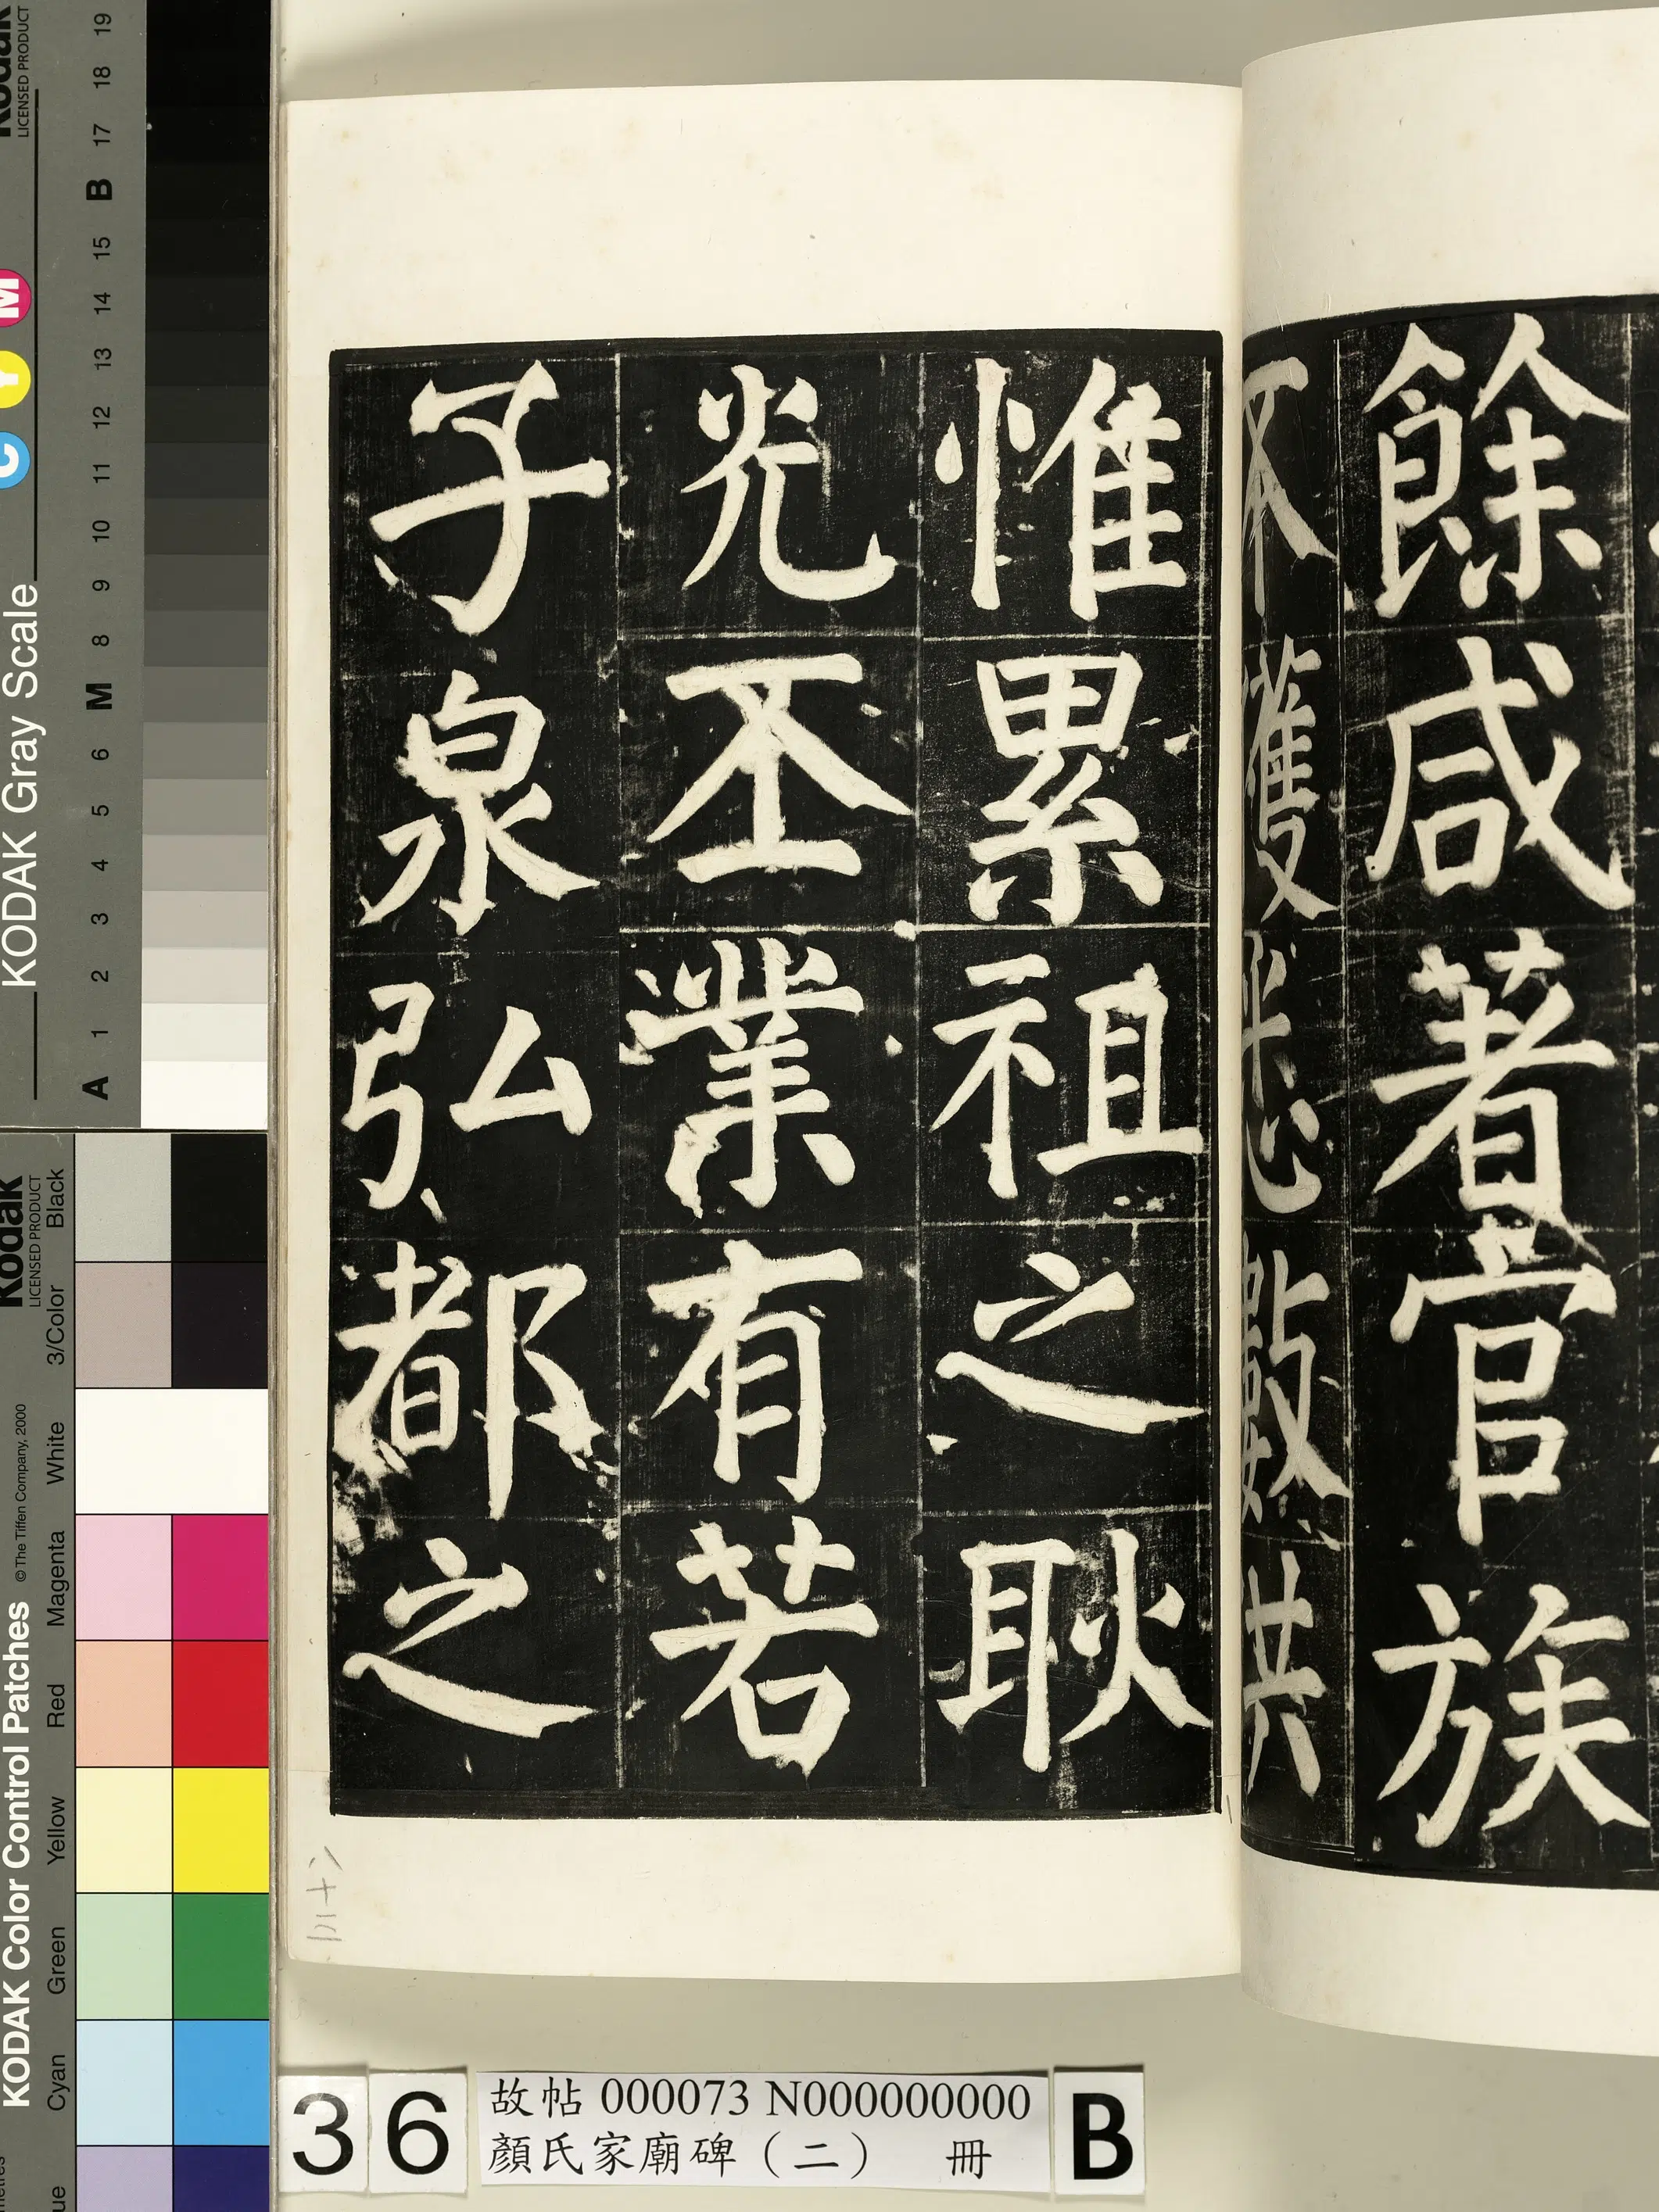 餘咸著官族
不獲平心數共
惟累祖之耿
光丕業有若
子泉弘都之
36
故帖 000073 N000000000
顏氏家廟碑（二） 冊
B
KODAK Gray Scale
Kodak
LICENSED PRODUCT
C Y M
A 1 2 3 4 5 6 M 8 9 10 11 12 13 14 15 B 17 18 19
KODAK Color Control Patches
© The Tiffen Company, 2000
Kodak
LICENSED PRODUCT
Cyan Green Yellow Red Magenta White 3/Color Black